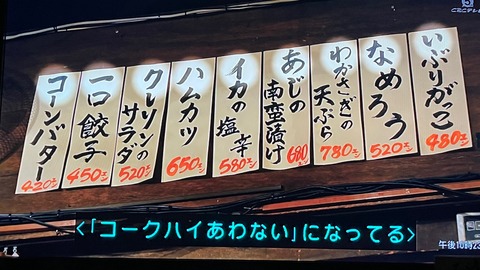 いぶりがっこ
480エン
なめろう
520エン
わかさぎの
天ぷら
780エン
あじの
南蛮漬け
680エン
イカの塩辛
580エン
ハムカツ
650エン
クレソンの
サラダ
520エン
一口餃子
450エン
コーンバター
420エン
<「コークハイあわない」になってる>